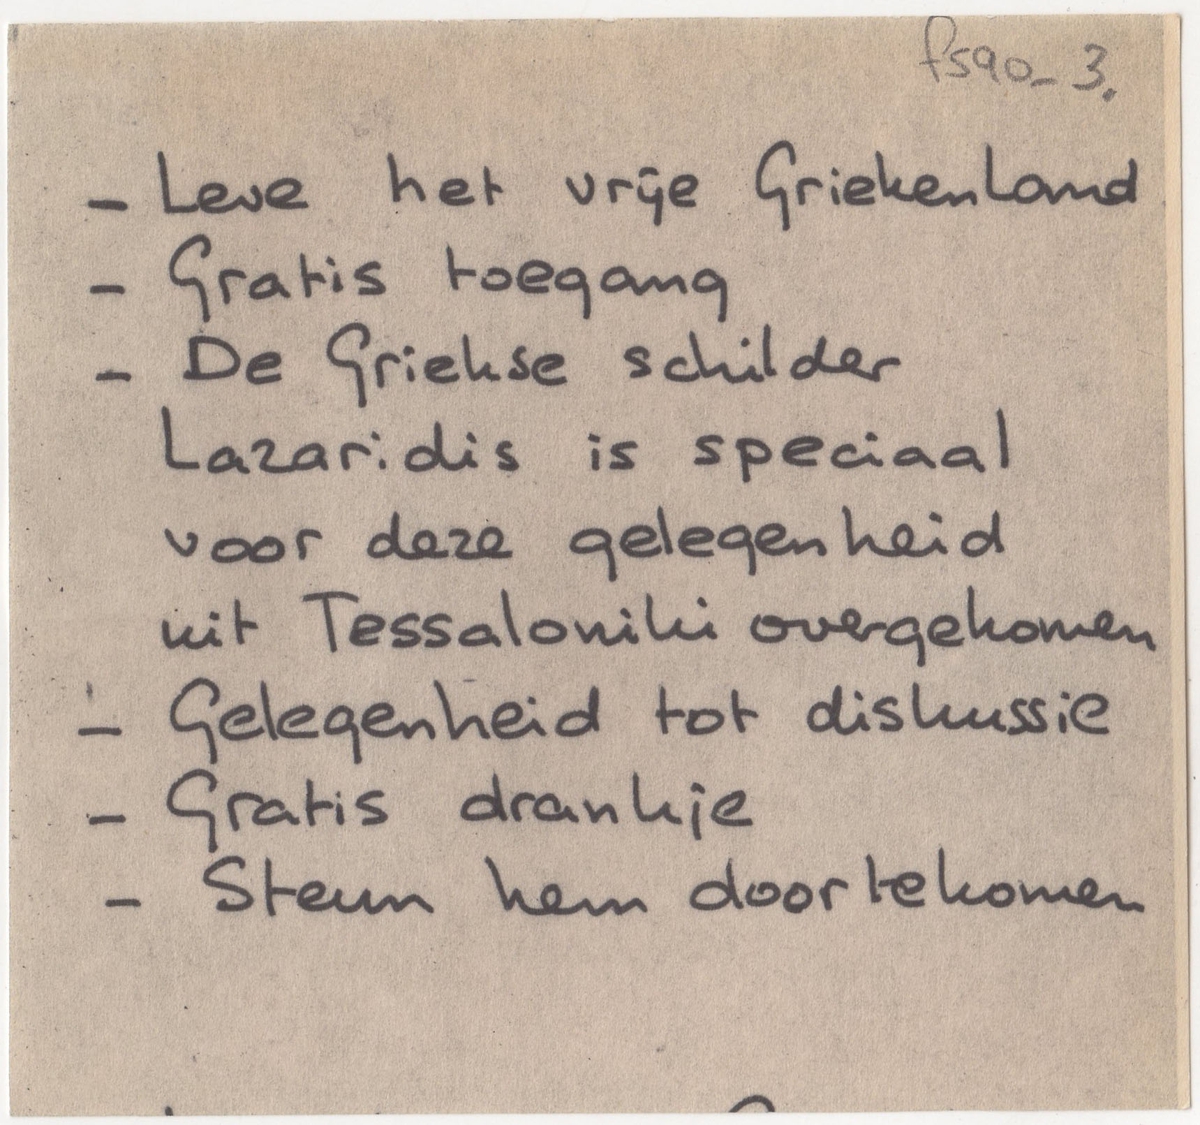 fs90-3.
- Leve het vrije Griekenland
- Gratis toegang
- De Griekse schilder
Lazaridis is speciaal
voor deze gelegenheid
uit Tessaloniki overgekomen
- Gelegenheid tot diskussie
- Gratis drankje
- Steun hem door te komen